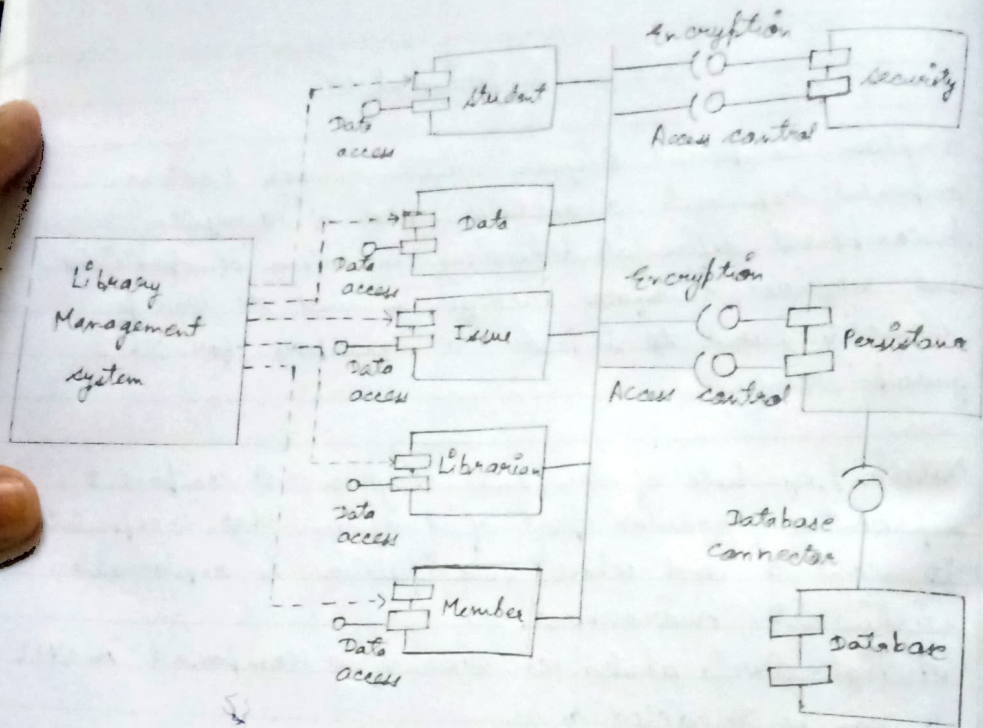 Library
Management
system
Student
Data
access
Data
Data
access
Issue
Data
access
Librarian
Data
access
Member
Data
access
Encryption
Security
Access control
Encryption
Persistana
Access control
Database
Connector
Database